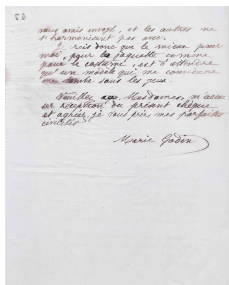 mais usagé, et les autres ne
s'harmonisent pas avec.
Je crois donc que le mieux pour
moi, pour la jaquette comme
pour le costume, est d'attendre
qu'un modèle qui me convienne
me tombe sous les yeux.
Veuillez Mesdames, m'accuser
réception du présent chèque
et agréer, je vous prie, mes parfaites
civilités
Marie Godin